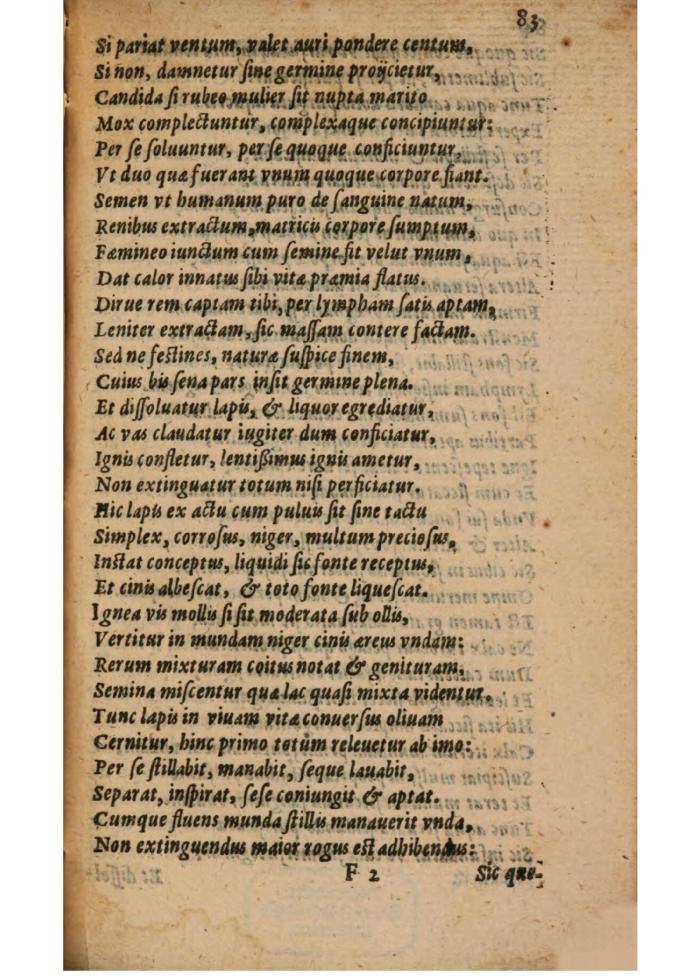 83
Si pariat ventum, valet auri pondere centum,
Si non, damnetur sine germine proijcietur,
Candida si rubeo mulier sit nupta marito
Mox complectuntur, complexaque concipiuntur:
Per se soluuntur, per se quoque conficiuntur,
Vt duo quæ fuerant vnum quoque corpore fiant.
Semen vt humanum puro de sanguine natum,
Renibus extractum, matricis corpore sumptum,
Fæmineo iunctum cum semine fit velut vnum,
Dat calor innatus sibi vitæ præmia flatus.
Dirue rem captam tibi, per lympham satis aptam,
Leniter extractam, sic massam contere factam.
Sed ne festines, naturæ suspice finem,
Cuius bis sena pars insit germine plena.
Et dissoluatur lapis, & liquor egrediatur,
Ac vas claudatur iugiter dum conficiatur,
Ignis confletur, lentißimus ignis ametur,
Non extinguatur totum nisi perficiatur.
Hic lapis ex actu cum puluis fit sine tactu
Simplex, corrosus, niger, multum preciosus,
Instat conceptus, liquidi sic fonte receptus,
Et cinis albescat, & toto fonte liquescat.
Ignea vis mollis si fit moderata sub ollis,
Vertitur in mundam niger cinis æreus vndam:
Rerum mixturam coitus notat & genituram,
Semina miscentur quæ lac quasi mixta videntur,
Tunc lapis in viuam vitæ conuersus oliuam
Cernitur, hinc primo totùm releuetur ab imo:
Per se stillabit, manabit, seque lauabit,
Separat, inspirat, sese coniungit & aptat.
Cumque fluens munda stillis manauerit vnda,
Non extinguendus maior rogus est adhibendus:
F 2
Sic quo-